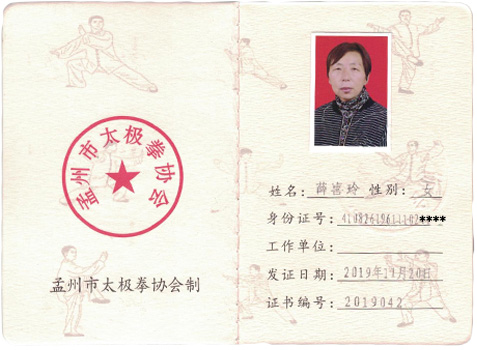 孟州市太极拳协会
孟州市太极拳协会制
姓名: 薛喜玲 性别: 女
身份证号: 41082619611102****
工作单位:
发证日期: 2019年11月20日
证书编号: 2019042